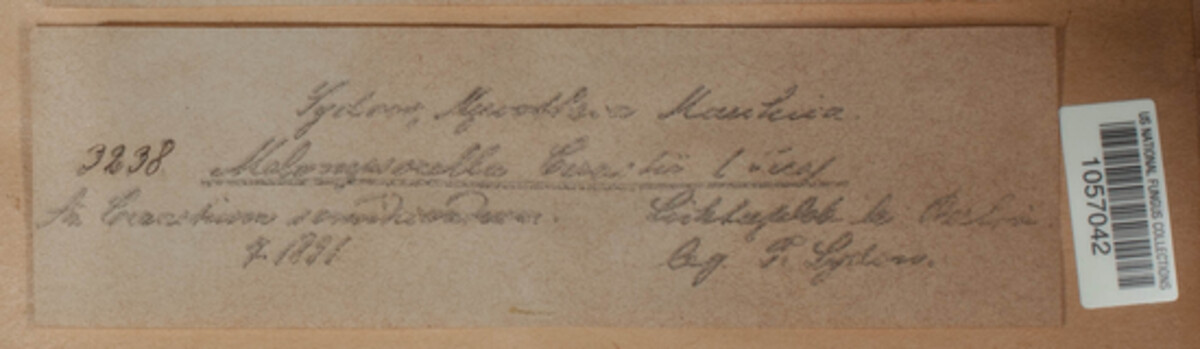 Sydow, Mycotheca Marchica.
3238 Melampsorella Cerastii (
In Cerastium semidecandrum. Lichterfelde b. Berlin.
7. 1891 leg. P. Sydow.
US NATIONAL FUNGUS COLLECTIONS
1057042